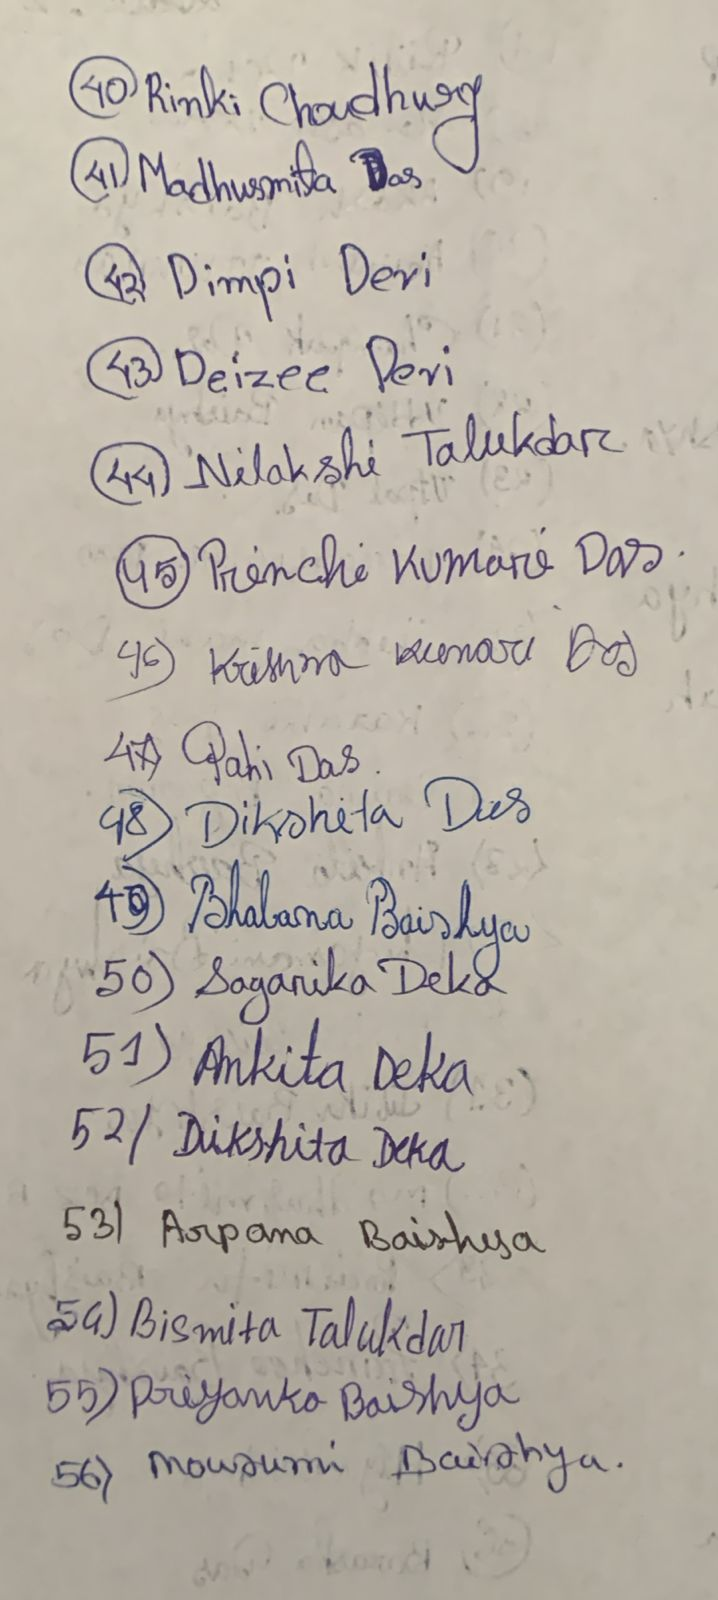 40 Rinki Choudhury
41) Madhusmita Das
42 Dimpi Devi
43 Deizee Devi
44) Nilakshi Talukdar
45 Princhi Kumari Das.
46) Krishna Kumari Das
47) Pahi Das.
48) Dikshita Das
49) Bhabana Baishya
50) Sagarika Deka
51) Ankita Deka
52/ Dikshita Deka
53) Arpana Baishya
54) Bismita Talukdar
55) Priyanka Baishya
56) Mousumi Baishya.